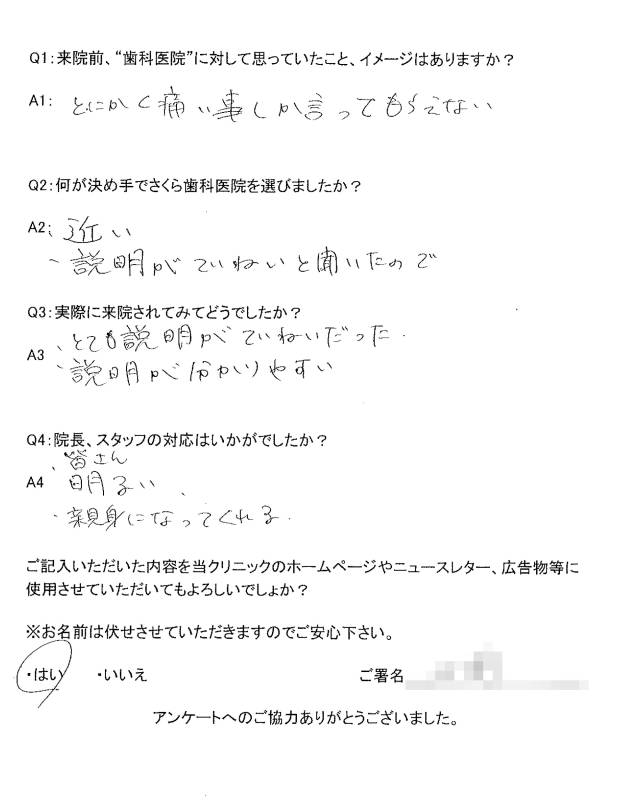 Q1：来院前、“歯科医院”に対して思っていたこと、イメージはありますか？
A1： とにかく痛い事しか言ってもらえない
Q2：何が決め手でさくら歯科医院を選びましたか？
A2： 近い
・説明がていねいと聞いたので
Q3：実際に来院されてみてどうでしたか？
・とても説明がていねいだった．
A3
・説明が分かりやすい
Q4：院長、スタッフの対応はいかがでしたか？
・皆さん
A4 明るい、
・親身になってくれる．
ご記入いただいた内容を当クリニックのホームページやニュースレター、広告物等に
使用させていただいてもよろしいでしょか？
※お名前は伏せさせていただきますのでご安心下さい。
・はい ・いいえ ご署名
アンケートへのご協力ありがとうございました。